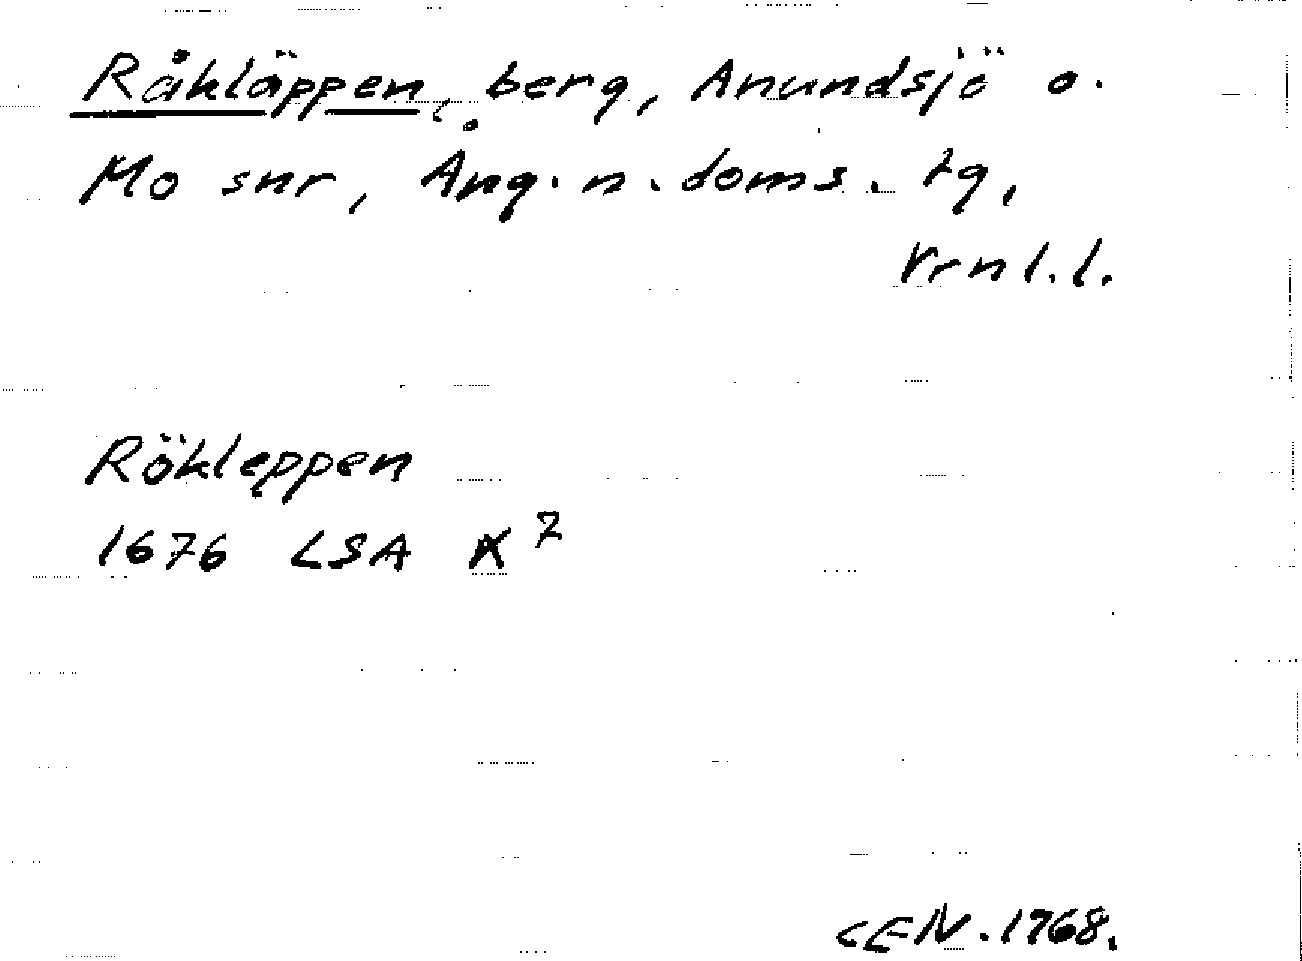 Råkläppen, berg, Anundsjö o.
Mo snr, Ång. n. doms. tg,
Vrnl.l.
Rökleppen
1676 LSA K7
CEN. 1968.